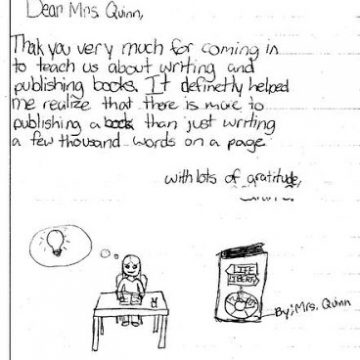 Dear Mrs. Quinn,
Thak you very much for coming in
to teach us about writing and
publishing books. It definetly helped
me realize that there is more to
publishing a book than just writing
a few thousand words on a page
with lots of gratitude,
LIFE
By; Mrs. Quinn